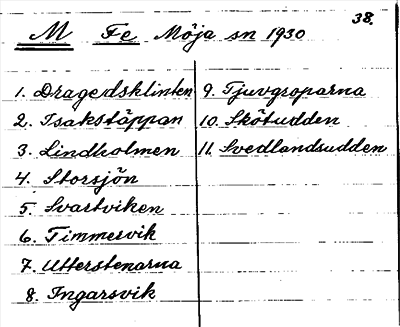 38.
M Fe Möja sn 1930
1. Dragedsklinten
2. Isakstäppan
3. Lindholmen
4. Storsjön
5. Svartviken
6. Timmervik
7. Utterstenarna
8. Ingarsvik
9. Tjuvgroparna
10. Skötudden
11. Svedlandsudden